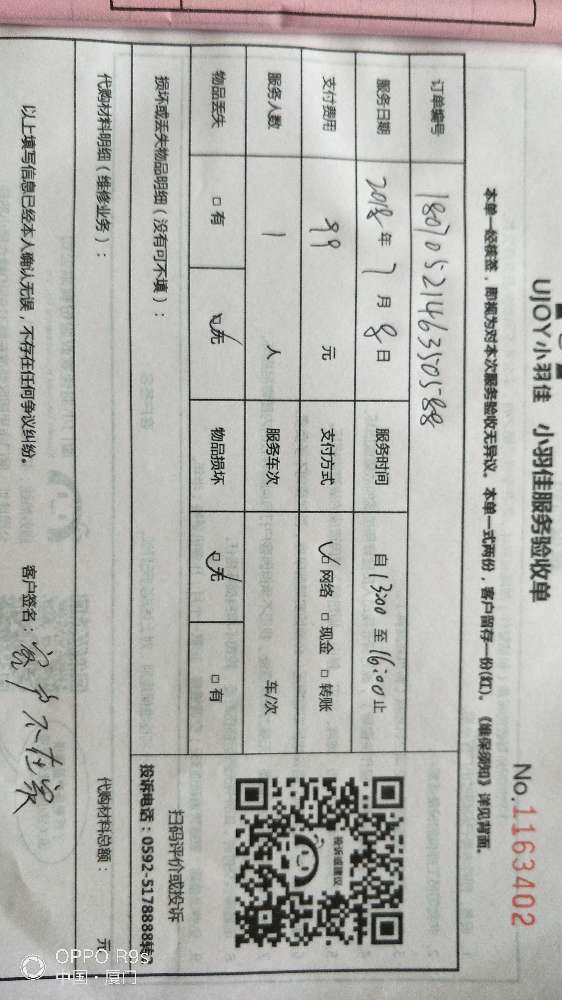 UJOY小羽佳 小羽佳服务验收单
No.1163402
本单一经核签，即视为对本次服务验收无异议。本单一式两份，客户留存一份(红)。《维保须知》详见背面。
订单编号 1807052146350588
服务日期 2018年7月8日 服务时间 自13:00至16:00止
支付费用 99 元 支付方式 ☑网络 □现金 □转账
服务人数 1 人 服务车次 车/次
物品丢失 □有 ☑无 物品损坏 ☑无 □有
投诉或建议
扫码评价或投诉
投诉电话：0592-5178888转
损坏或丢失物品明细（没有可不填）：
代购材料明细（维修业务）： 代购材料总额： 元
以上填写信息已经本人确认无误，不存在任何争议纠纷。 客户签名：客户不在家
OPPO R9s
中国·厦门